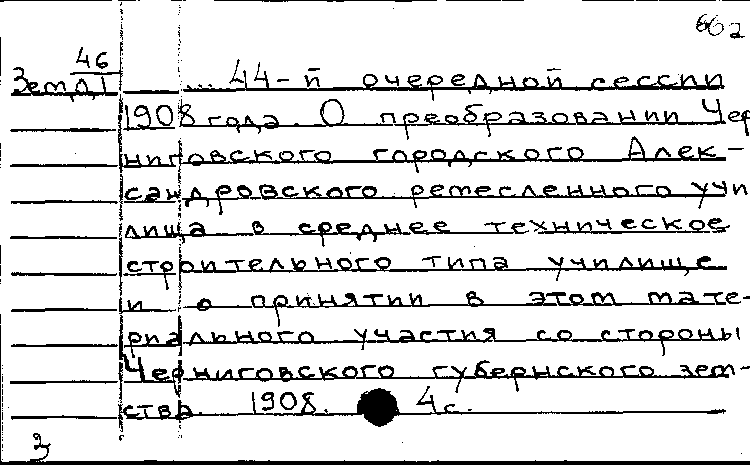 662
46
Зем.д.1
... 44-й очередной сессии
1908 года. О преобразовании Чер
ниговского городского Алек-
сандровского ремесленного учи
лища в среднее техническое
строительного типа училище
и о принятии в этом мате-
риального участия со стороны
Черниговского губернского зем-
ства. 1908. 4с.